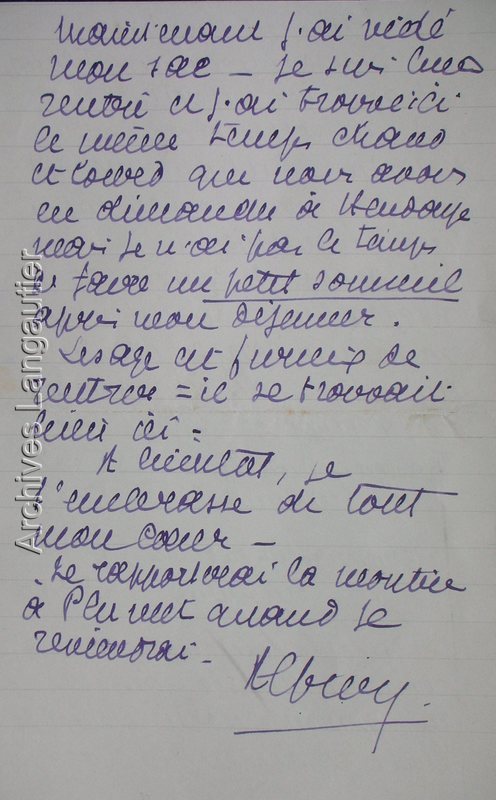 maintenant j'ai vidé
mon sac – je suis bien
rentré et j'ai trouvé ici
le même temps chaud
et lourd que nous avons
eu dimanche à
mais je n'ai pas le temps
de faire un petit sommeil
après mon déjeuner.
Lesage est furieux de
rentrer = il se trouvait
bien ici =
A bientôt, je
t'embrasse de tout
mon coeur –
Je rapporterai la montre
à quand je
reviendrai –
Archives Langautier